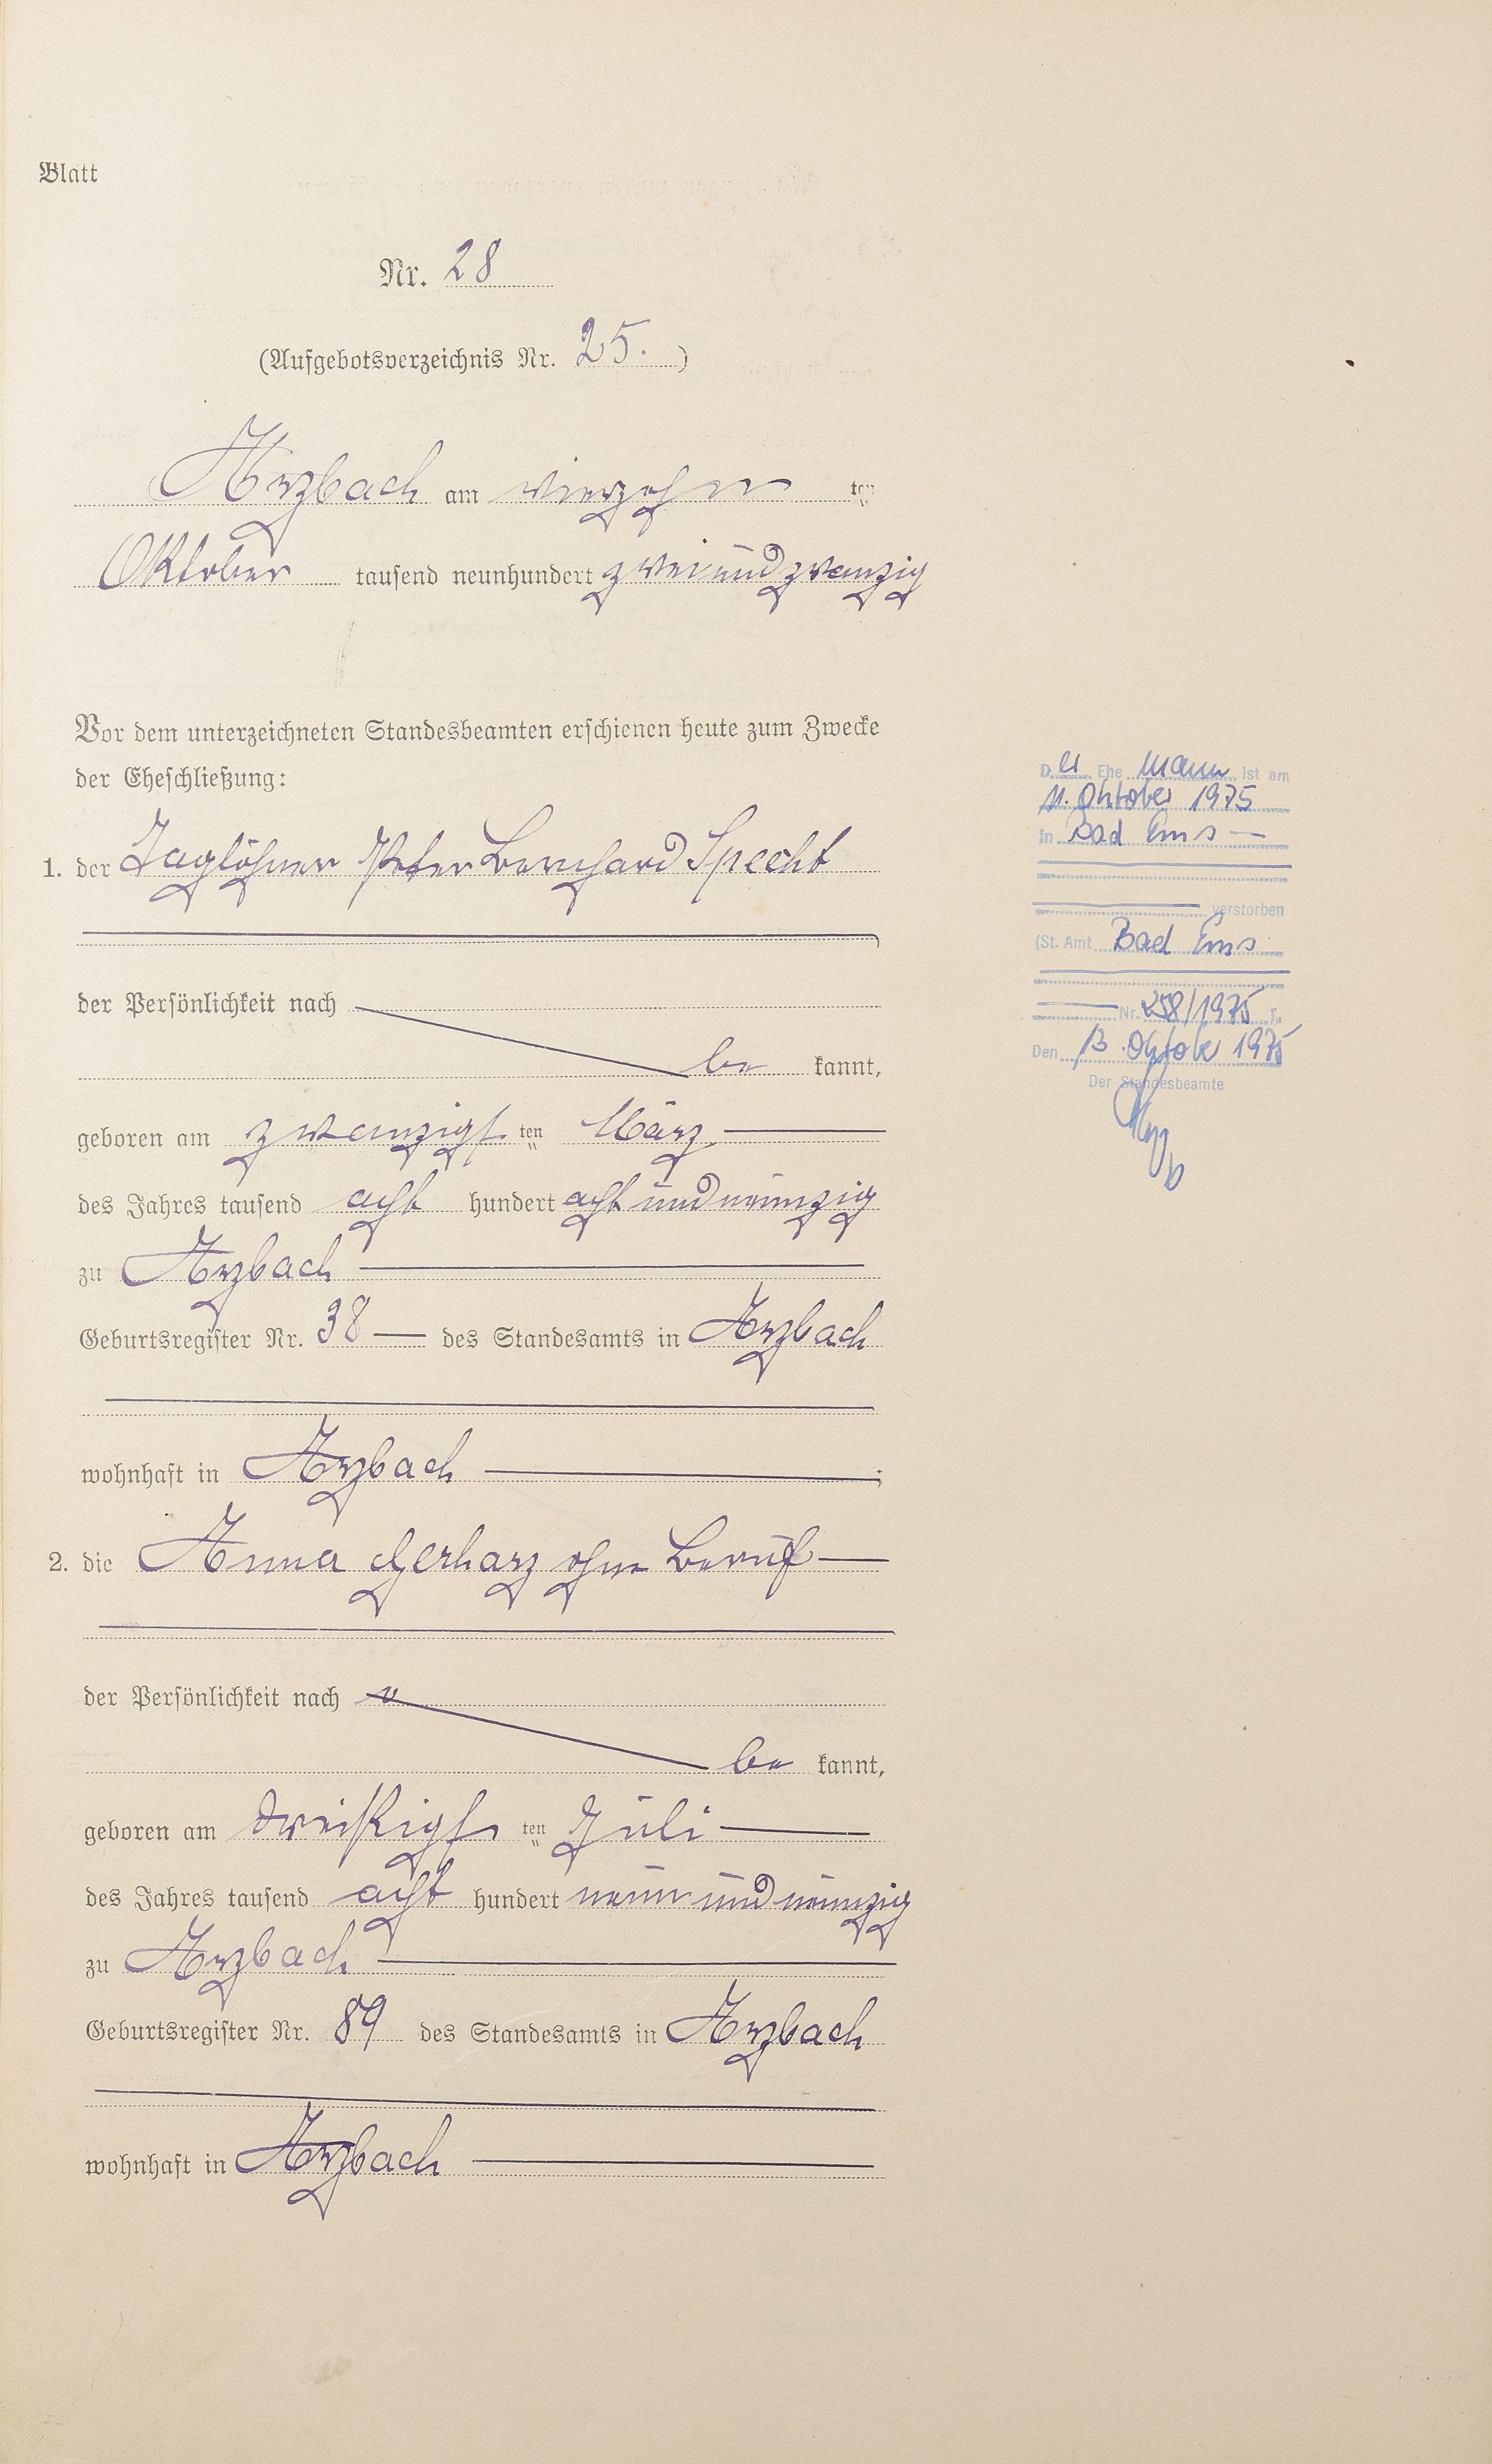 Blatt
Nr. 28
(Aufgebotsverzeichnis Nr. 25.)
Arzbach am vierzehn ten
Oktober tausend neunhundert zweiundzwanzig
Vor dem unterzeichneten Standesbeamten erschienen heute zum Zwecke
der Eheschließung:
1. der Taglöhner Peter Bernhard Specht
der Persönlichkeit nach
be kannt,
geboren am zwanzigs ten März
des Jahres tausend acht hundert acht und neunzig
zu Arzbach
Geburtsregister Nr. 38 des Standesamts in Arzbach
wohnhaft in Arzbach
2. die Anna Gerharz ohne Beruf
der Persönlichkeit nach
be kannt,
geboren am dreißigs ten Juli
des Jahres tausend acht hundert neun und neunzig
zu Arzbach
Geburtsregister Nr. 89 des Standesamts in Arzbach
wohnhaft in Arzbach
Der Ehe mann ist am
11. Oktober 1975
in Bad Ems
verstorben
(St. Amt Bad Ems
Nr. 258/1975
Den 13. Oktober 1975
Der Standesbeamte